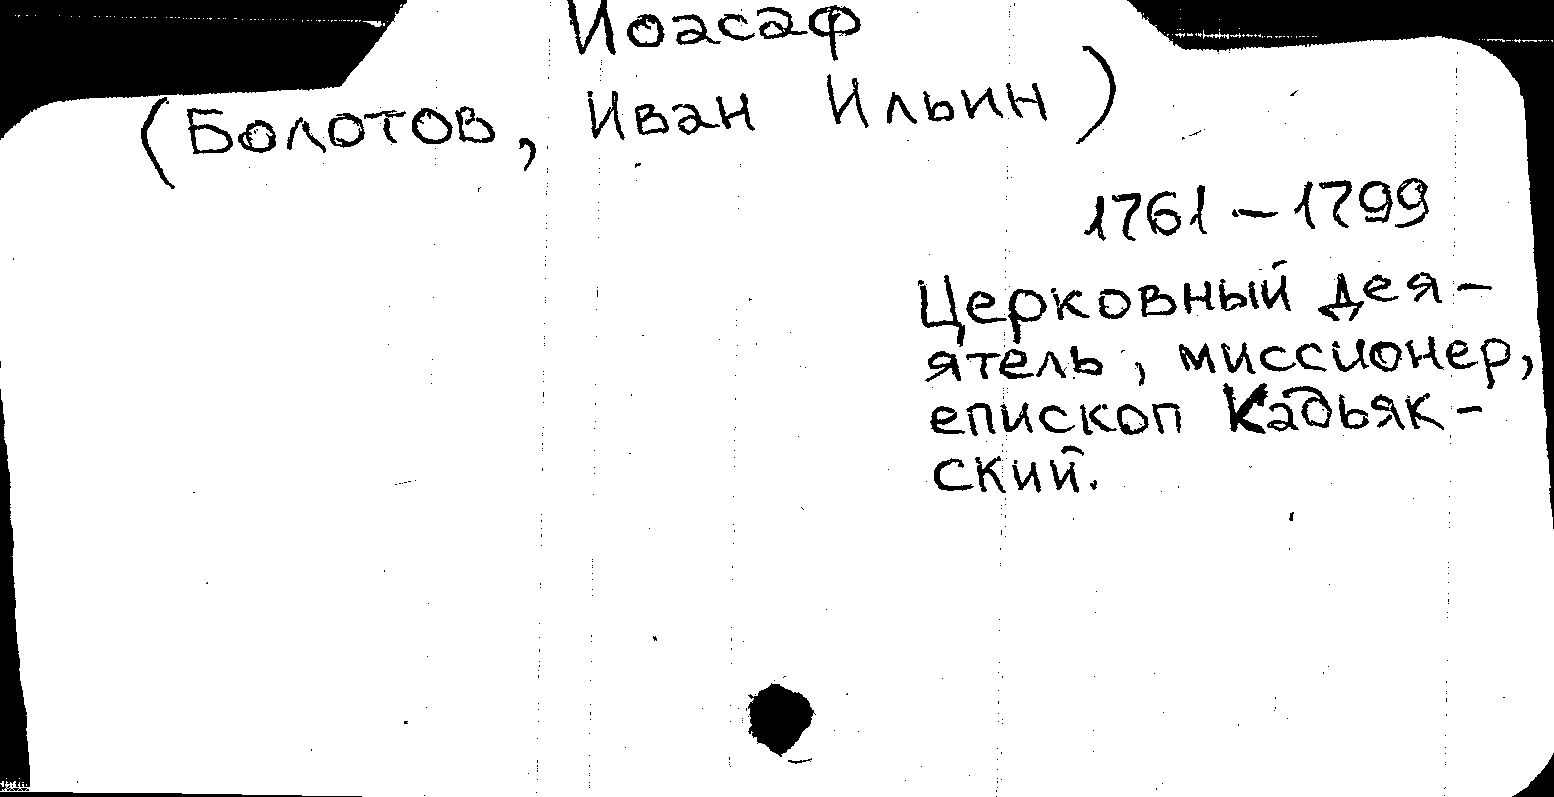 Иоасаф
(Болотов, Иван Ильин)
1761 – 1799
Церковный дея-
ятель, миссионер,
епископ Кадьяк-
ский.